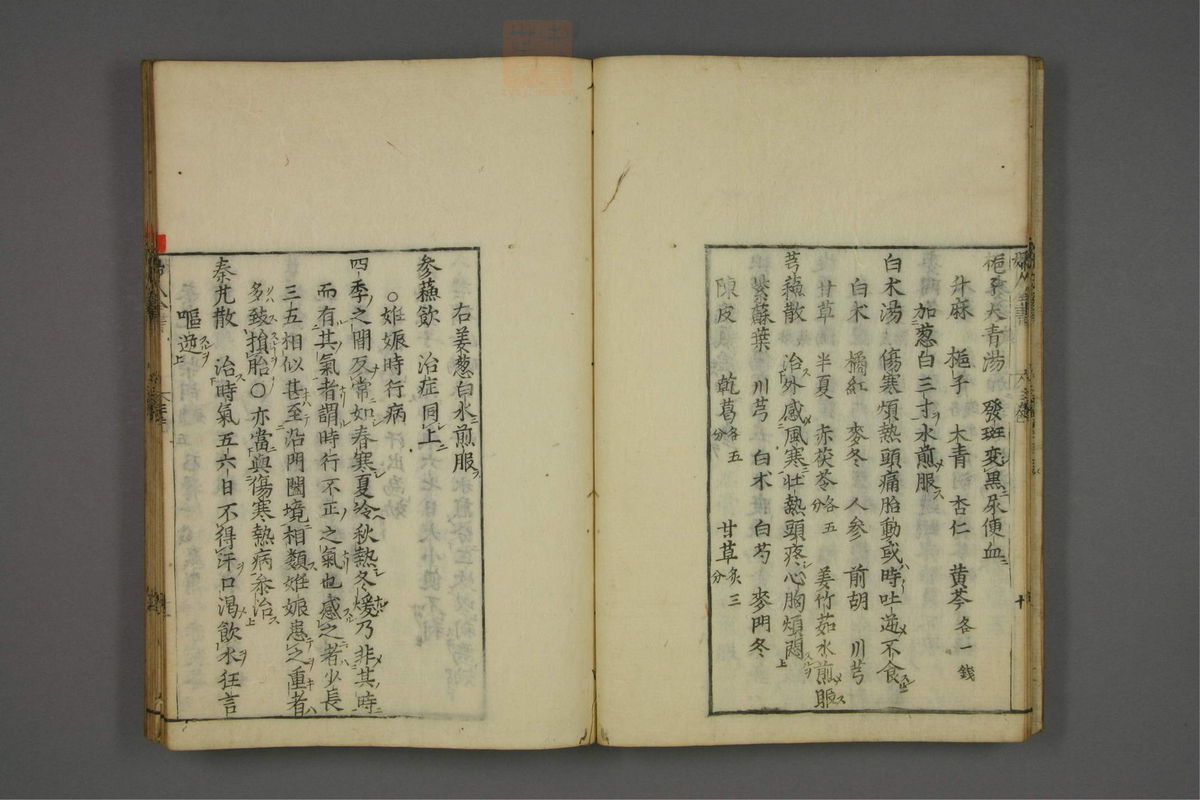 梔子大青湯 發斑変黒尿便血
升麻 梔子 大青 杏仁 黄芩各一錢
加葱白三寸水煎服
白朮湯 傷寒煩熱頭痛胎動或時吐逆不食
白朮 橘紅 麥冬 人參 前胡 川芎
甘草 半夏 赤茯苓各五分 姜竹茹水煎服
芎蘓散 治外感風寒壮熱頭疼心胸煩悶
紫蘇葉 川芎 白朮 白芍 麥門冬
陳皮 乾葛各五分 甘草炙三分
右姜葱白水煎服
參蘓飲 治症同上
○姙娠時行病
四季之間反常如春寒夏冷秋熱冬煖乃非其時
而有其氣者謂時行不正之氣也感之者少長
三五相似甚至沿門闔境相類姙娠患之重者
多致損胎○亦當與傷寒熱病叅治
秦艽散 治時氣五六日不得汗口渴飲水狂言
嘔逆